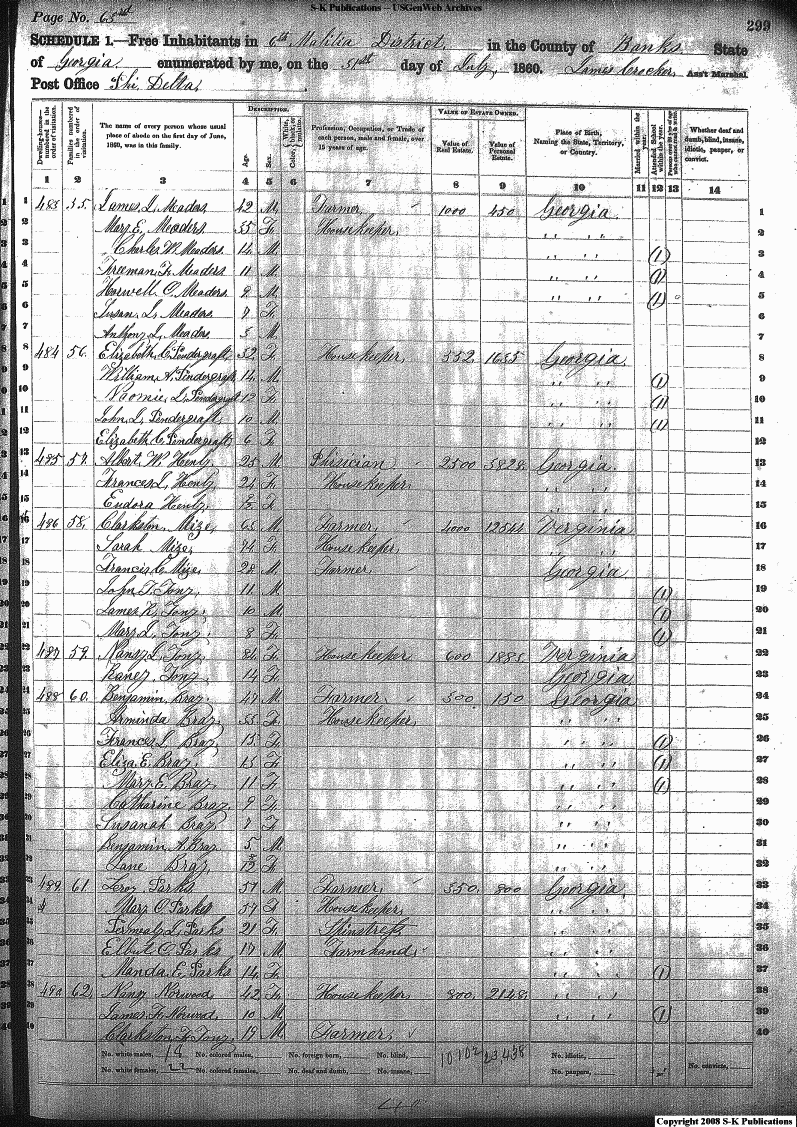 S-K Publications – USGenWeb Archives
Page No. 65rd
299
SCHEDULE 1.—Free Inhabitants in 6th Malitia District in the County of Banks State
of Georgia enumerated by me, on the 31th day of July, 1860. James Crocker Ass't Marshal.
Post Office Phi. Delta,
Dwelling-houses—numbered in the order of visitation.
Families numbered in the order of visitation.
The name of every person whose usual place of abode on the first day of June, 1860, was in this family.
DESCRIPTION.
Age.
Sex.
Profession, Occupation, or Trade of each person, male and female, over 15 years of age.
VALUE OF ESTATE OWNED.
Value of Real Estate.
Value of Personal Estate.
Place of Birth, Naming the State, Territory, or Country.
Married within the year.
Attended School within the year.
Whether deaf and dumb, blind, insane, idiotic, pauper, or convict.
1 2 3 4 5 6 7 8 9 10 11 12 13 14
1 James L. Meaders 42 M. Farmer 1000 450 Georgia 1
2 Mary E. Meaders F. House keeper, " " 2
3 Charles W. Meaders 14 M. " " (1) 3
4 Freeman F. Meaders 11 M. " " (1) 4
5 Horwell C. Meaders 9 M. " " (1) 5
6 Susan, L. Meaders 7 F. 6
7 Anthony L. Meaders M. 7
8 484 56. Elizabeth C. Pendergraft F. House keeper, 1655 Georgia 8
9 William A. Pendergraft 14 M. " " (1) 9
10 Naomie L. Pendergraft 12 F. " " (1) 10
11 John, L. Pendergraft 10 M. " " (1) 11
12 Elizabeth C. Pendergraft 6 F. 12
13 485 57. Albert W. 25 M. Phisician 2500 5828 Georgia 13
14 Frances L. 24 F. House keeper " " 14
15 Eudora F. " " 15
16 486 58. Clarkston Mize, 65 M. Farmer, 4000 12544 Verginia 16
17 Sarah Mize, 74 F. House keeper, " " 17
18 Francis C. Mize, 28 M. Farmer Georgia 18
19 John T. Tony, 11 M. (1) 19
20 James R. Tony, 10 M. (1) 20
21 Mary L. Tony, 8 F. (1) 21
22 487 59. Nancy L. Tony, F. House keeper 600 1885 Verginia 22
23 Raney Tony, 14 F. Georgia 23
24 488 60. Benjamin, Bray 49 M. Farmer 500 150 Georgia 24
25 Arminda Bray F. House keeper, " " 25
26 Frances L. Bray 15 F. " " (1) 26
27 Eliza E. Bray, 13 F. " " (1) 27
28 Mary E. Bray, 11 F. " " (1) 28
29 Catharine Bray, 9 F. 29
30 Susanah Bray, 7 F. " " 30
31 Benjamin A. Bray 5 M. " " 31
32 Jane Bray, F. " " 32
33 489 61. Leroy Parks 57 M. Farmer 550, 800 Georgia 33
34 Mary C. Parks 57 F. House keeper, " " 34
35 L. Parks 21 F. " " 35
36 Elbut C. Parks 17 M. Farm hand, " " 36
37 Manda E. Parks 14 F. " " (1) 37
38 490 62. Nancy Norwood, 42 F. House keeper, 800, 2148 " " 38
39 James F. Norwood, 10 M. " " (1) 39
40 Clarkston F. Tony, 19 M. Farmer, 40
No. white males, 18 No. colored males, No. foreign born, No. blind, 10102 23,438 No. idiotic, No. convicts,
No. white females, 22 No. colored females, No. deaf and dumb, No. insane, No. paupers,
Copyright 2008 S-K Publications